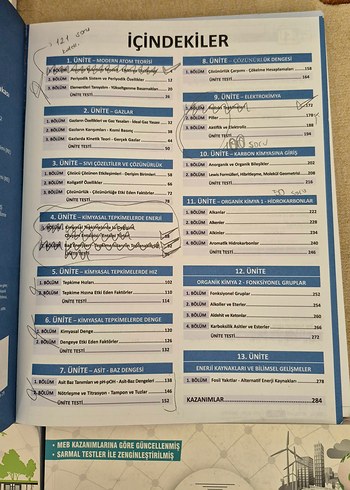 121 soru
İÇİNDEKİLER
1. ÜNİTE – MODERN ATOM TEORİSİ
1. BÖLÜM
2. BÖLÜM Periyodik Sistem ve Periyodik Özellikler 12
3. BÖLÜM Elementleri Tanıyalım - Yükseltgenme Basamakları 20
ÜNİTE TESTİ
2. ÜNİTE – GAZLAR
1. BÖLÜM Gazların Özellikleri ve Gaz Yasaları - İdeal Gaz Yasası 32
2. BÖLÜM Gazların Karışımları - Kısmi Basınç
3. BÖLÜM Gazlarda Kinetik Teori - Gerçek Gazlar 44
ÜNİTE TESTİ 50
3. ÜNİTE – SIVI ÇÖZELTİLER VE ÇÖZÜNÜRLÜK
1. BÖLÜM Çözücü Çözünen Etkileşimleri - Derişim Birimleri 58
2. BÖLÜM Koligatif Özellikler 66
3. BÖLÜM Çözünürlük - Çözünürlüğe Etki Eden Faktörler 72
ÜNİTE TESTİ 78
4. ÜNİTE – KİMYASAL TEPKİMELERDE ENERJİ
1. BÖLÜM
2. BÖLÜM
ÜNİTE TESTİ
5. ÜNİTE – KİMYASAL TEPKİMELERDE HIZ
1. BÖLÜM Tepkime Hızları 102
2. BÖLÜM Tepkime Hızına Etki Eden Faktörler 110
ÜNİTE TESTİ 114
6. ÜNİTE – KİMYASAL TEPKİMELERDE DENGE
1. BÖLÜM Kimyasal Denge 120
2. BÖLÜM Dengeye Etki Eden Faktörler 126
ÜNİTE TESTİ 132
7. ÜNİTE – ASİT - BAZ DENGESİ
1. BÖLÜM Asit Baz Tanımları ve pH-pOH - Asit-Baz Dengeleri 138
2. BÖLÜM Nötrleşme ve Titrasyon - Tampon ve Tuzlar 146
ÜNİTE TESTİ 152
8. ÜNİTE – ÇÖZÜNÜRLÜK DENGESİ
Çözünürlük Çarpımı - Çökelme Hesaplamaları 158
ÜNİTE TESTİ 166
9. ÜNİTE – ELEKTROKİMYA
1. BÖLÜM 172
2. BÖLÜM Piller 178
3. BÖLÜM Aktiflik ve Elektroliz 188
ÜNİTE TESTİ 196
soru
10. ÜNİTE – KARBON KİMYASINA GİRİŞ
1. BÖLÜM Anorganik ve Organik Bileşikler 202
2. BÖLÜM Lewis Formülleri, Hibritleşme, Molekül Geometrileri 208
ÜNİTE TESTİ 216
soru
11. ÜNİTE – ORGANİK KİMYA 1 - HİDROKARBONLAR
1. BÖLÜM Alkanlar 222
2. BÖLÜM Alkenler 228
3. BÖLÜM Alkinler 234
4. BÖLÜM Aromatik Hidrokarbonlar 240
ÜNİTE TESTİ 246
12. ÜNİTE
ORGANİK KİMYA 2 - FONKSİYONEL GRUPLAR
1. BÖLÜM Fonksiyonel Gruplar 252
2. BÖLÜM Alkoller ve Eterler 254
3. BÖLÜM Aldehit ve Ketonlar 260
4. BÖLÜM Karboksilik Asitler ve Esterler 266
ÜNİTE TESTİ 272
13. ÜNİTE
ENERJİ KAYNAKLARI VE BİLİMSEL GELİŞMELER
1. BÖLÜM Fosil Yakıtlar - Alternatif Enerji Kaynakları 278
KAZANIMLAR 284
• MEB KAZANIMLARINA GÖRE GÜNCELLENMİŞ
• SARMAL TESTLER İLE ZENGİNLEŞTİRİLMİŞ